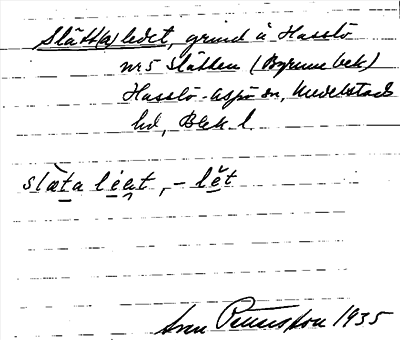 Slätt(a)ledet, grind å Hasslö
nr 5 Slätten (Byrums bek)
Hasslö-Aspö sn, Medelstads
hd, Blek. l.
slæ̀ta léat, – lĕt
Sven Pettersson 1935